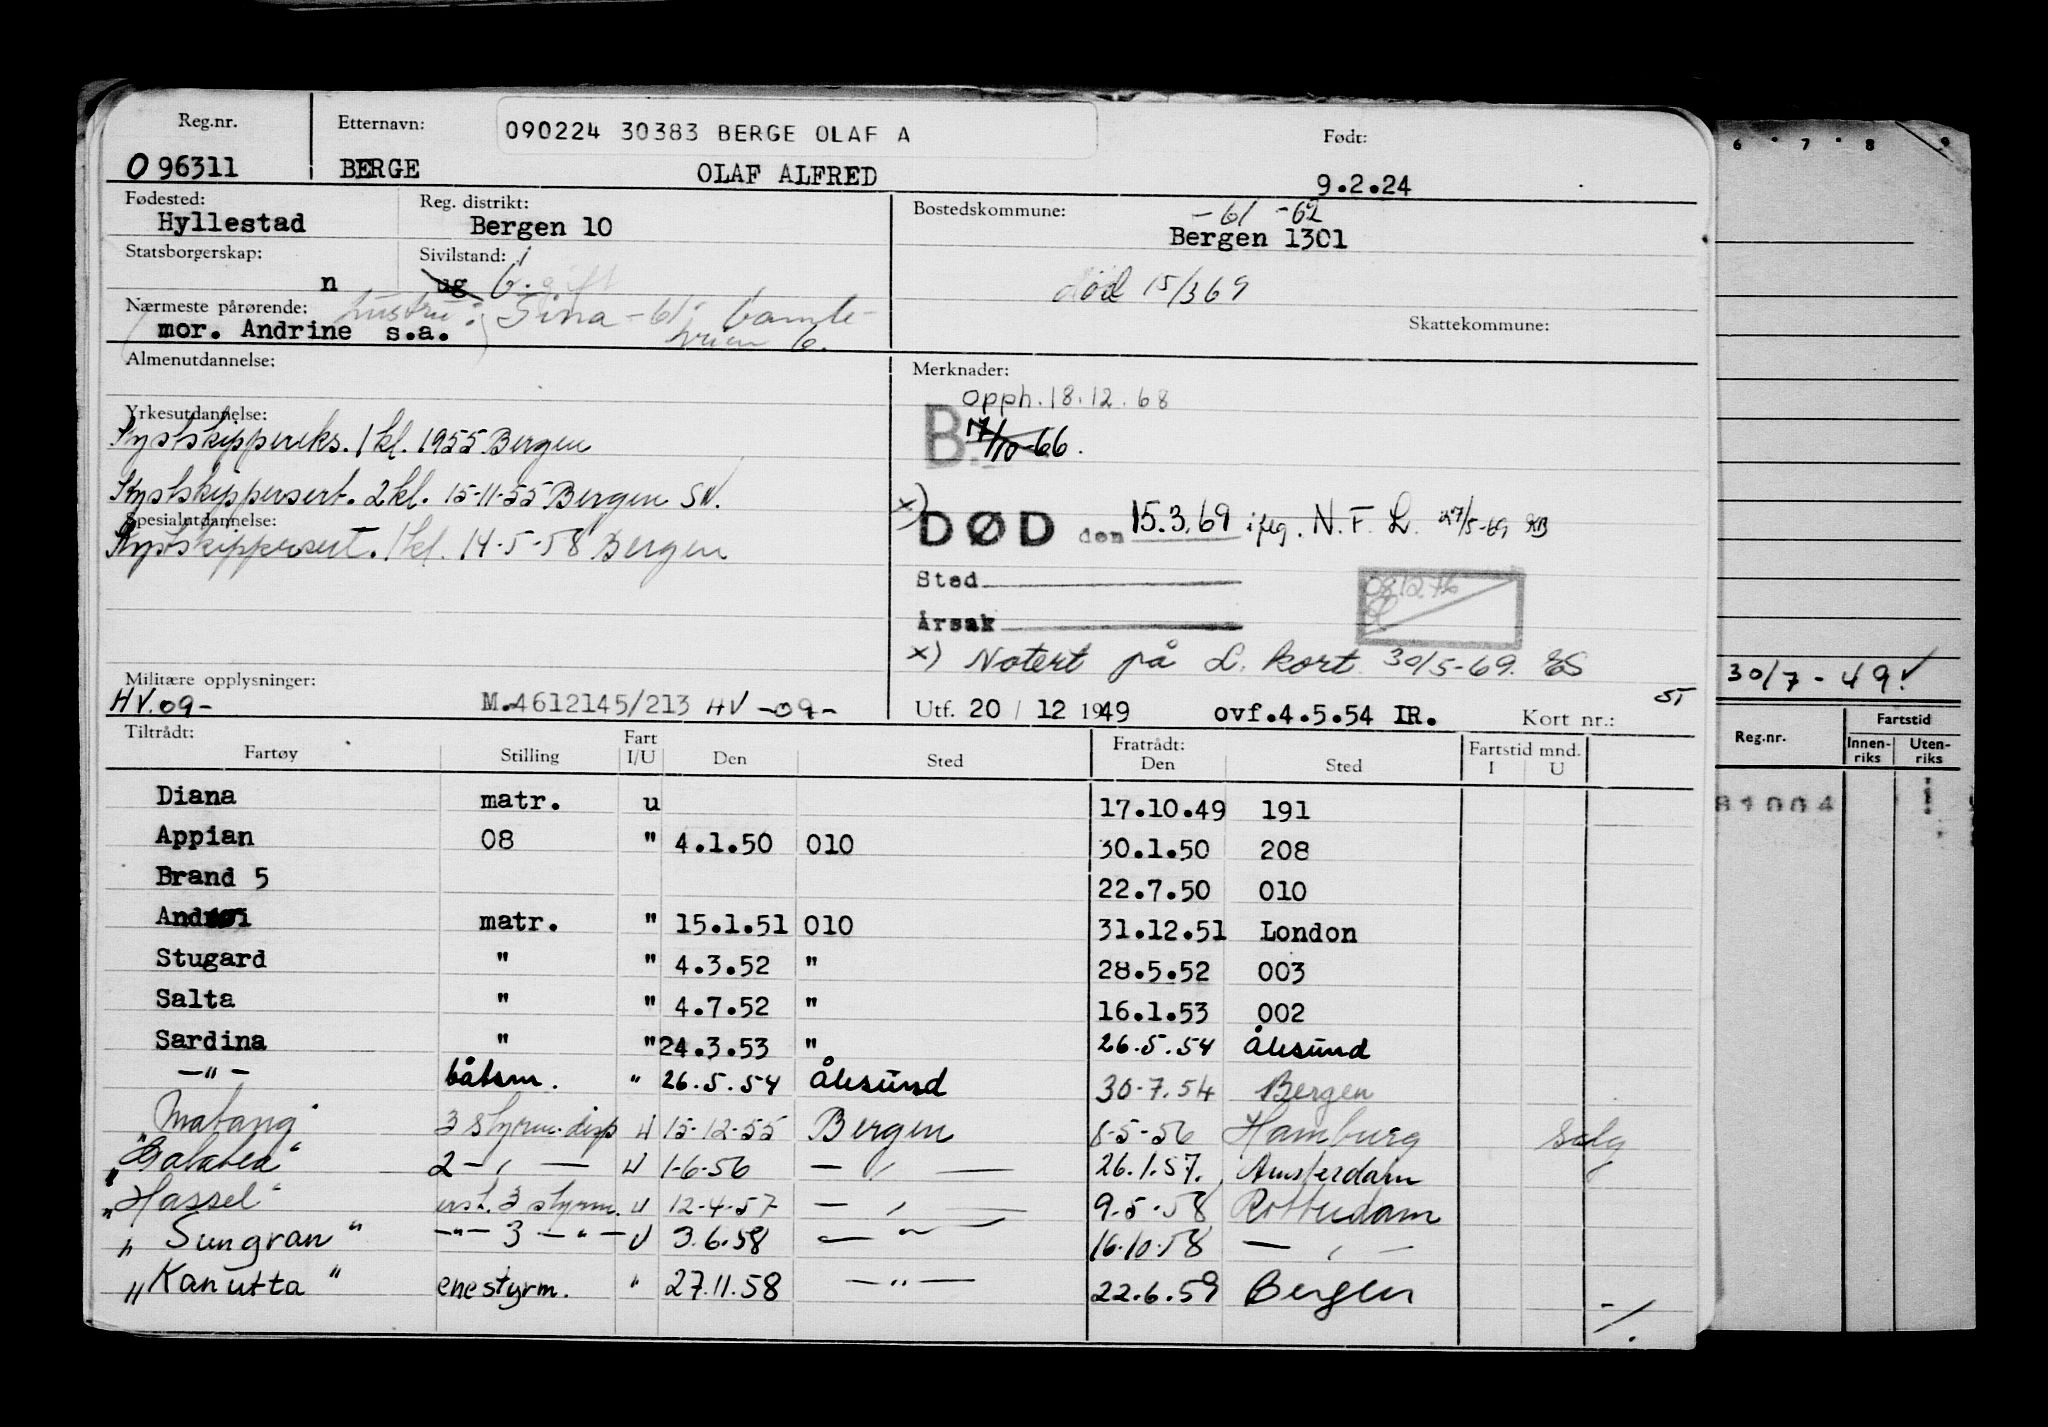 Reg.nr. Etternavn: 090224 30383 BERGE OLAF A Født:
096311 BERGE OLAF ALFRED 9.2.24
Fødested: Reg. distrikt: Bostedskommune: -61 -62
Hyllestad Bergen 10 Bergen 1301
Statsborgerskap: Sivilstand:
n ug g. gift død 15/3 69
Nærmeste pårørende: hustru: Gina -61- Skattekommune:
mor. Andrine s.a.
Almenutdannelse: Merknader:
opph. 18.12.68
Yrkesutdannelse:
Kystskippereks. 1 kl. 1955 Bergen B. 17/10-66.
Kystskippersert. 2 kl. 15-11-55 Bergen SN.
Spesialutdannelse: x) DØD den 15.3.69 iflg. N.F.L. 27/5-69 KB
Kystskippersert. 1 kl. 14-5-58 Bergen
Sted
081276
Årsak
x) Notert på L. kort 30/5-69. ES
Militære opplysninger: 30/7-49
HV.09- M.4612145/213 HV -09- Utf. 20 / 12 1949 ovf.4.5.54 IR. Kort nr.:
Tiltrådt: Fartøy Stilling Fart I/U Den Sted Fratrådt: Den Sted Fartstid mnd. I U
Reg.nr. Fartstid Innen-riks Uten-riks
Diana matr. u 17.10.49 191
81004
Appian 08 " 4.1.50 010 30.1.50 208
Brand 5 22.7.50 010
matr. " 15.1.51 010 31.12.51 London
Stugard " " 4.3.52 " 28.5.52 003
Salta " " 4.7.52 " 16.1.53 002
Sardina " " 24.3.53 " 26.5.54 Ålesund
-"- båtsm. " 26.5.54 Ålesund 30-7.54 Bergen
Matang 3 styrm. disp U 15-12-55 Bergen 8-5-56 Hamburg
"Galatea" 2 -"- U 1-6-56 -"- 26.1.57. Amsterdam
"Hassel" 3 styrm. U 12-4-57 -"- 9-5-58 Rotterdam
"Sungran" -"- 3 -"- U 3.6.58 -"- 16.10.58 -"-
"Kanutta" enestyrm. " 27.11.58 -"- 22.6.59 Bergen